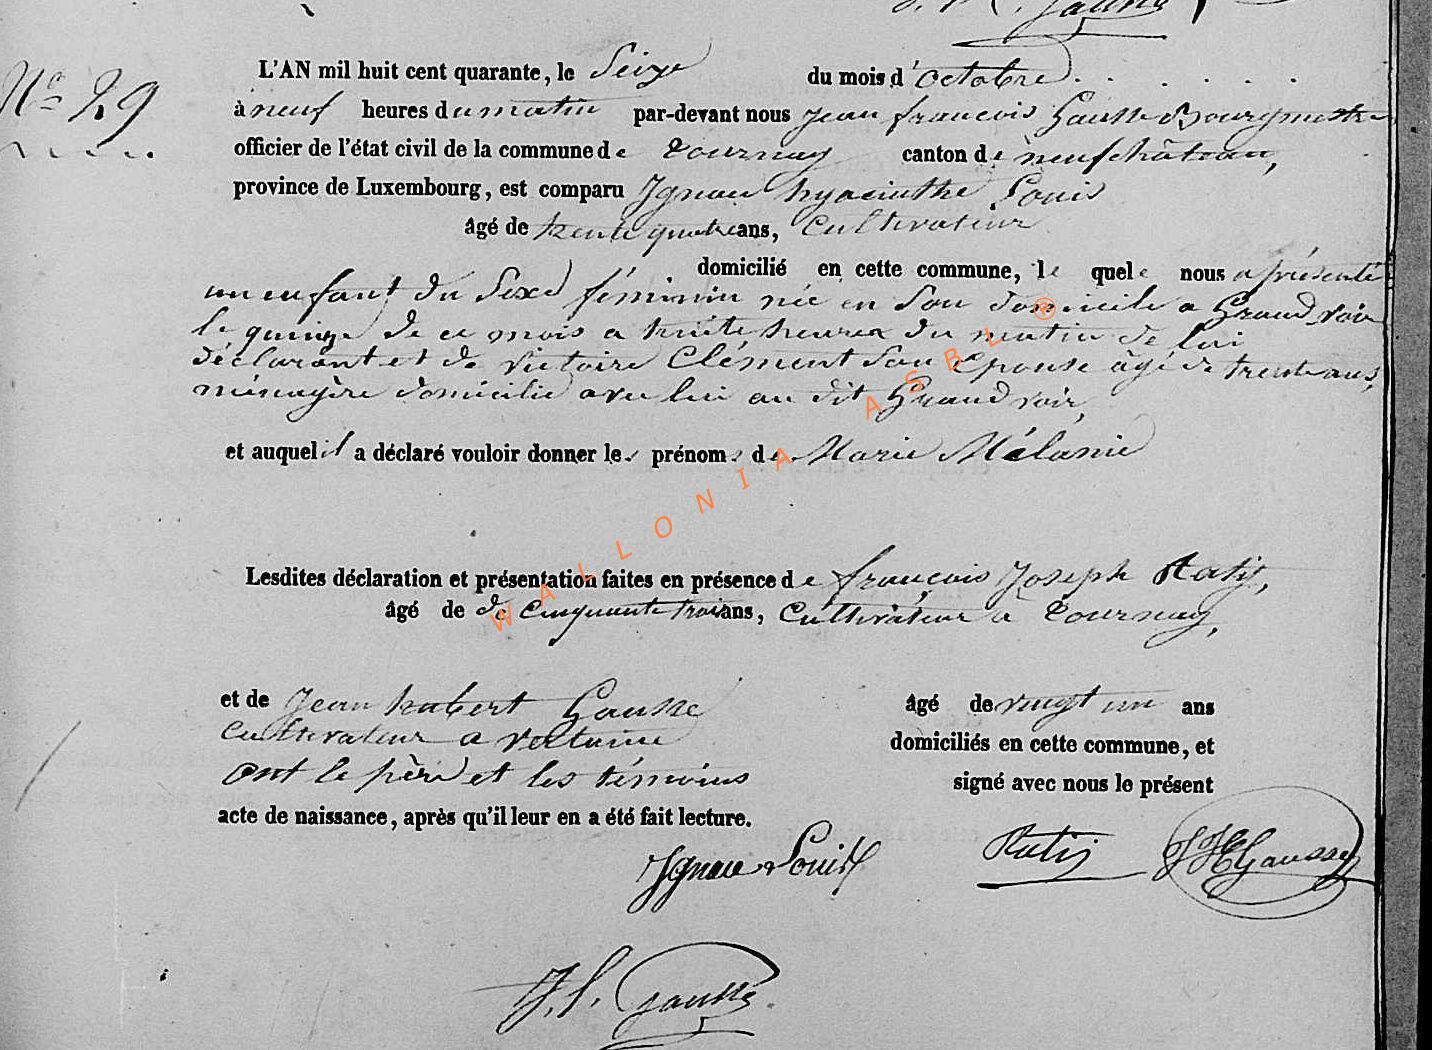 N° 29
L'AN mil huit cent quarante, le Seize du mois d'octobre
à neuf heures du matin par-devant nous Jean françois Gausse Bourgmestre
officier de l'état civil de la commune de Tournay canton de neufchâteau,
province de Luxembourg, est comparu Ignace hyacinthe Louis
âgé de trente quatre ans, Cultivateur
domicilié en cette commune, le quel nous a présenté
un enfant du Sexe féminin née en Son domicile a Grandvoir
le quinze de ce mois a huite heures du matin de lui
déclarant et de victoire Clément Son épouse âgé de trente ans,
ménagère domicilié avec lui au dit Grandvoir,
et auquel il a déclaré vouloir donner les prénoms de Marie Mélanie
Lesdites déclaration et présentation faites en présence de françois Joseph Ratij,
âgé de de Cinquante trois ans, Cultivateur a Tournay,
et de Jean hubert Gausse âgé de vingt un ans
Cultivateur a verlaine domiciliés en cette commune, et
ont le père et les témoins signé avec nous le présent
acte de naissance, après qu'il leur en a été fait lecture.
Ignace Louis Ratij JH Gausse
J. f. Gausse
WALLONIA ASBL ®